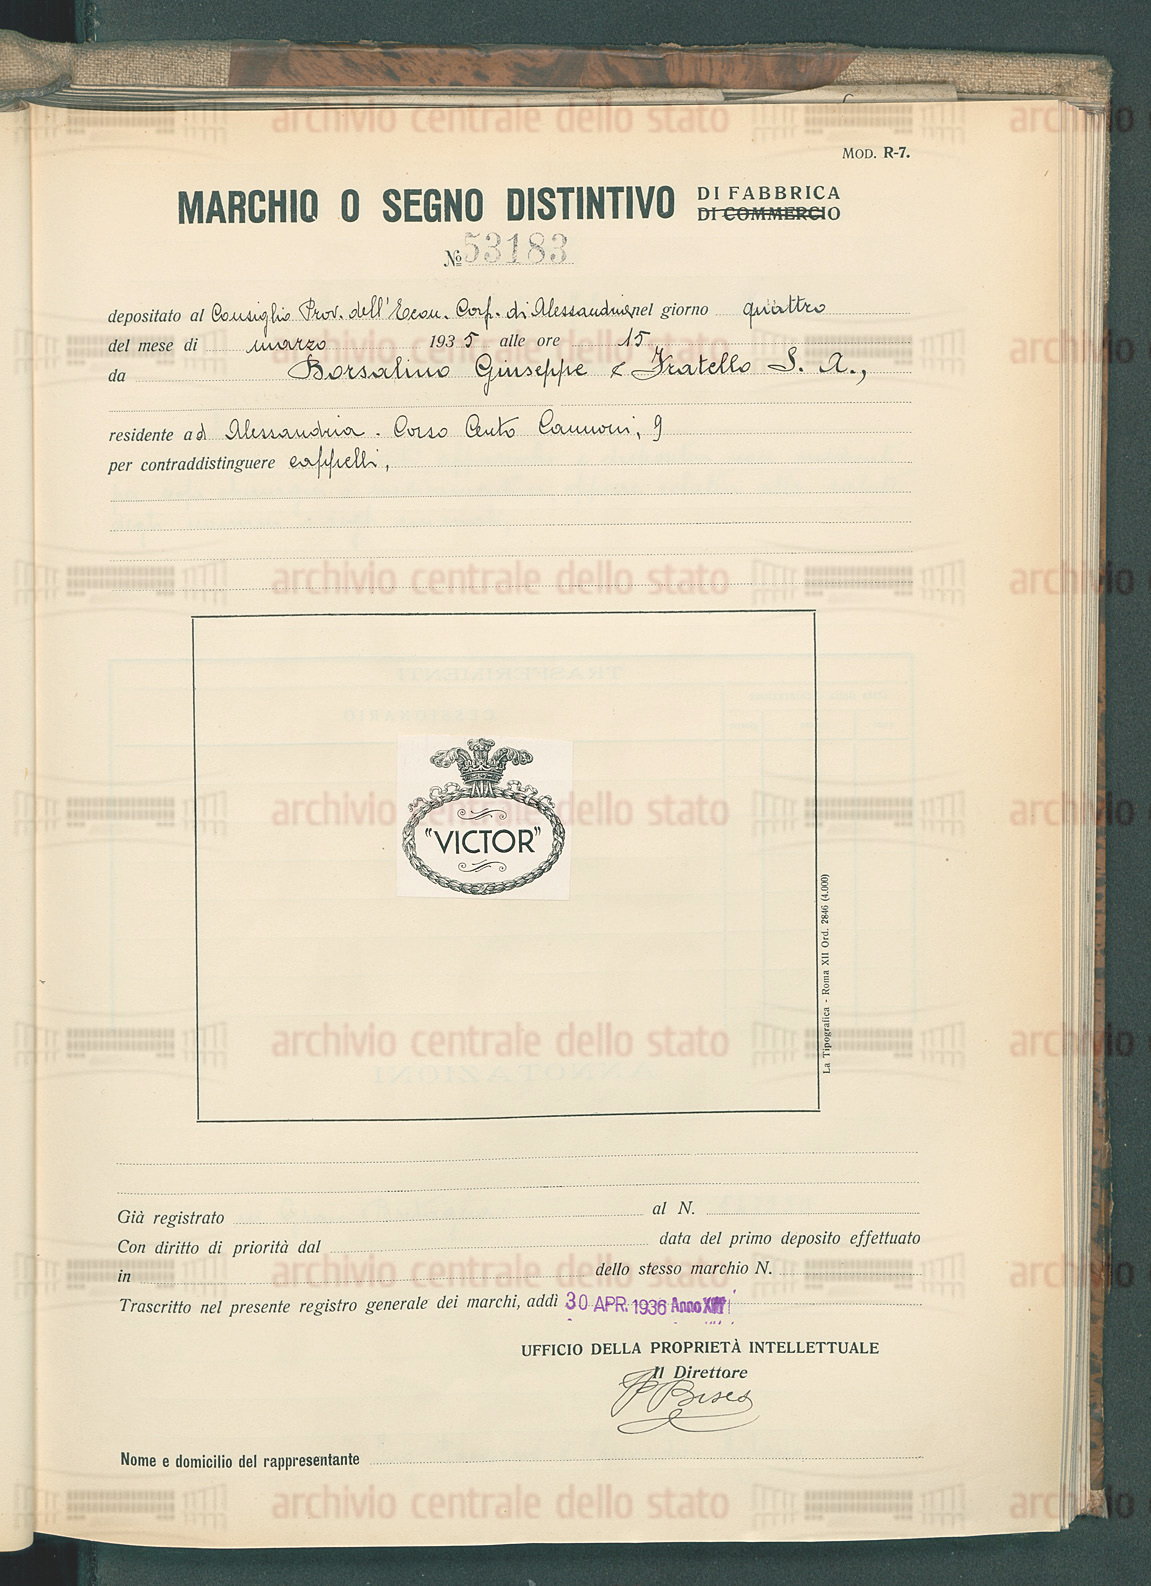 MOD. R-7.
MARCHIO O SEGNO DISTINTIVO DI FABBRICA
DI COMMERCIO
№ 53183
depositato al Consiglio Prov. dell'Econ. Corp. di Alessandria nel giorno quattro
del mese di marzo 1935 alle ore 15
da Borsalino Giuseppe e Fratello S. A.,
residente ad Alessandria. Corso Cento Cannoni, 9
per contraddistinguere cappelli,
"VICTOR"
La Tipografica - Roma XII Ord. 2846 (4.000)
Già registrato al N.
Con diritto di priorità dal data del primo deposito effettuato
in dello stesso marchio N.
Trascritto nel presente registro generale dei marchi, addì 30 APR. 1936 Anno
UFFICIO DELLA PROPRIETÀ INTELLETTUALE
Il Direttore
Nome e domicilio del rappresentante
archivio centrale dello stato